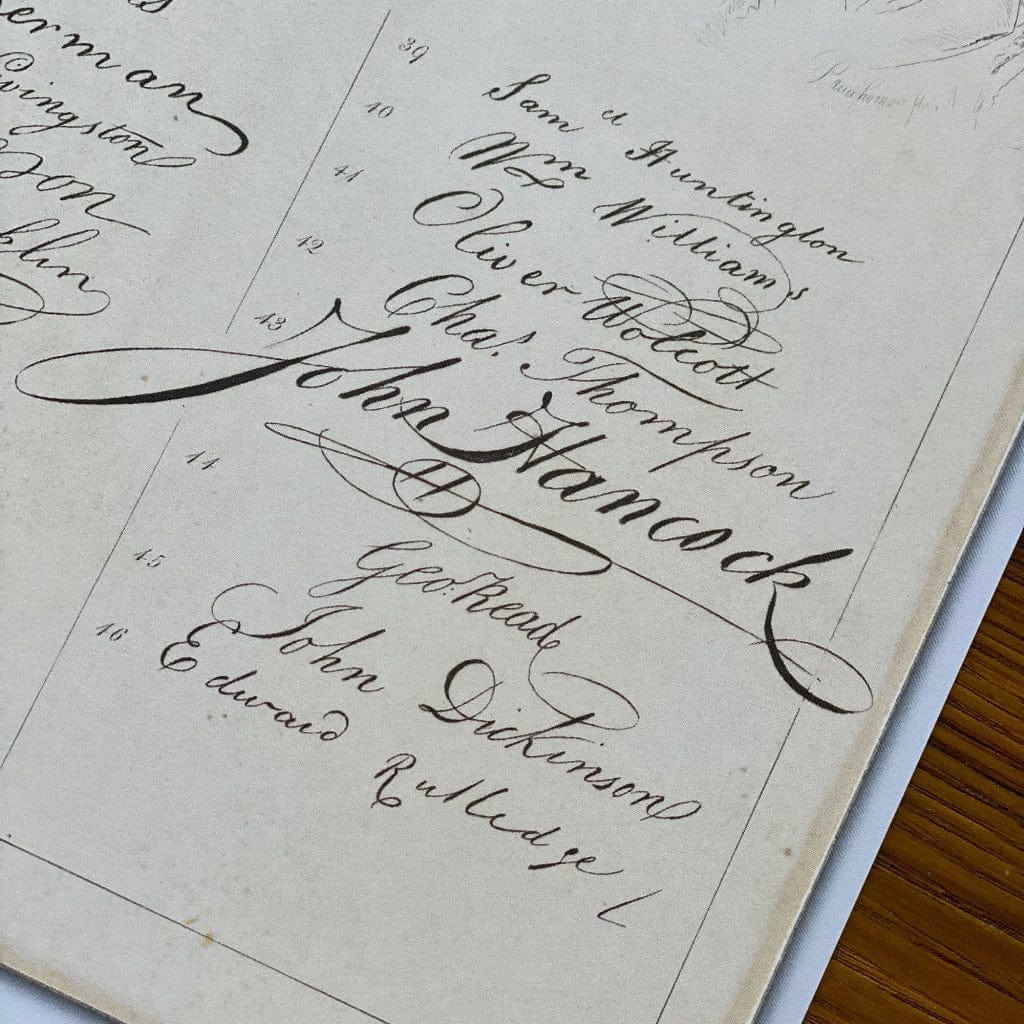 erman
vingston
son
klin
39 Sam^d Huntington
40 Wm Williams
41 Oliver Wolcott
42 Cha^s. Thompson
43 John Hancock
H
44 Geo. Read
45 John Dickinson
46 Edward Rutledge